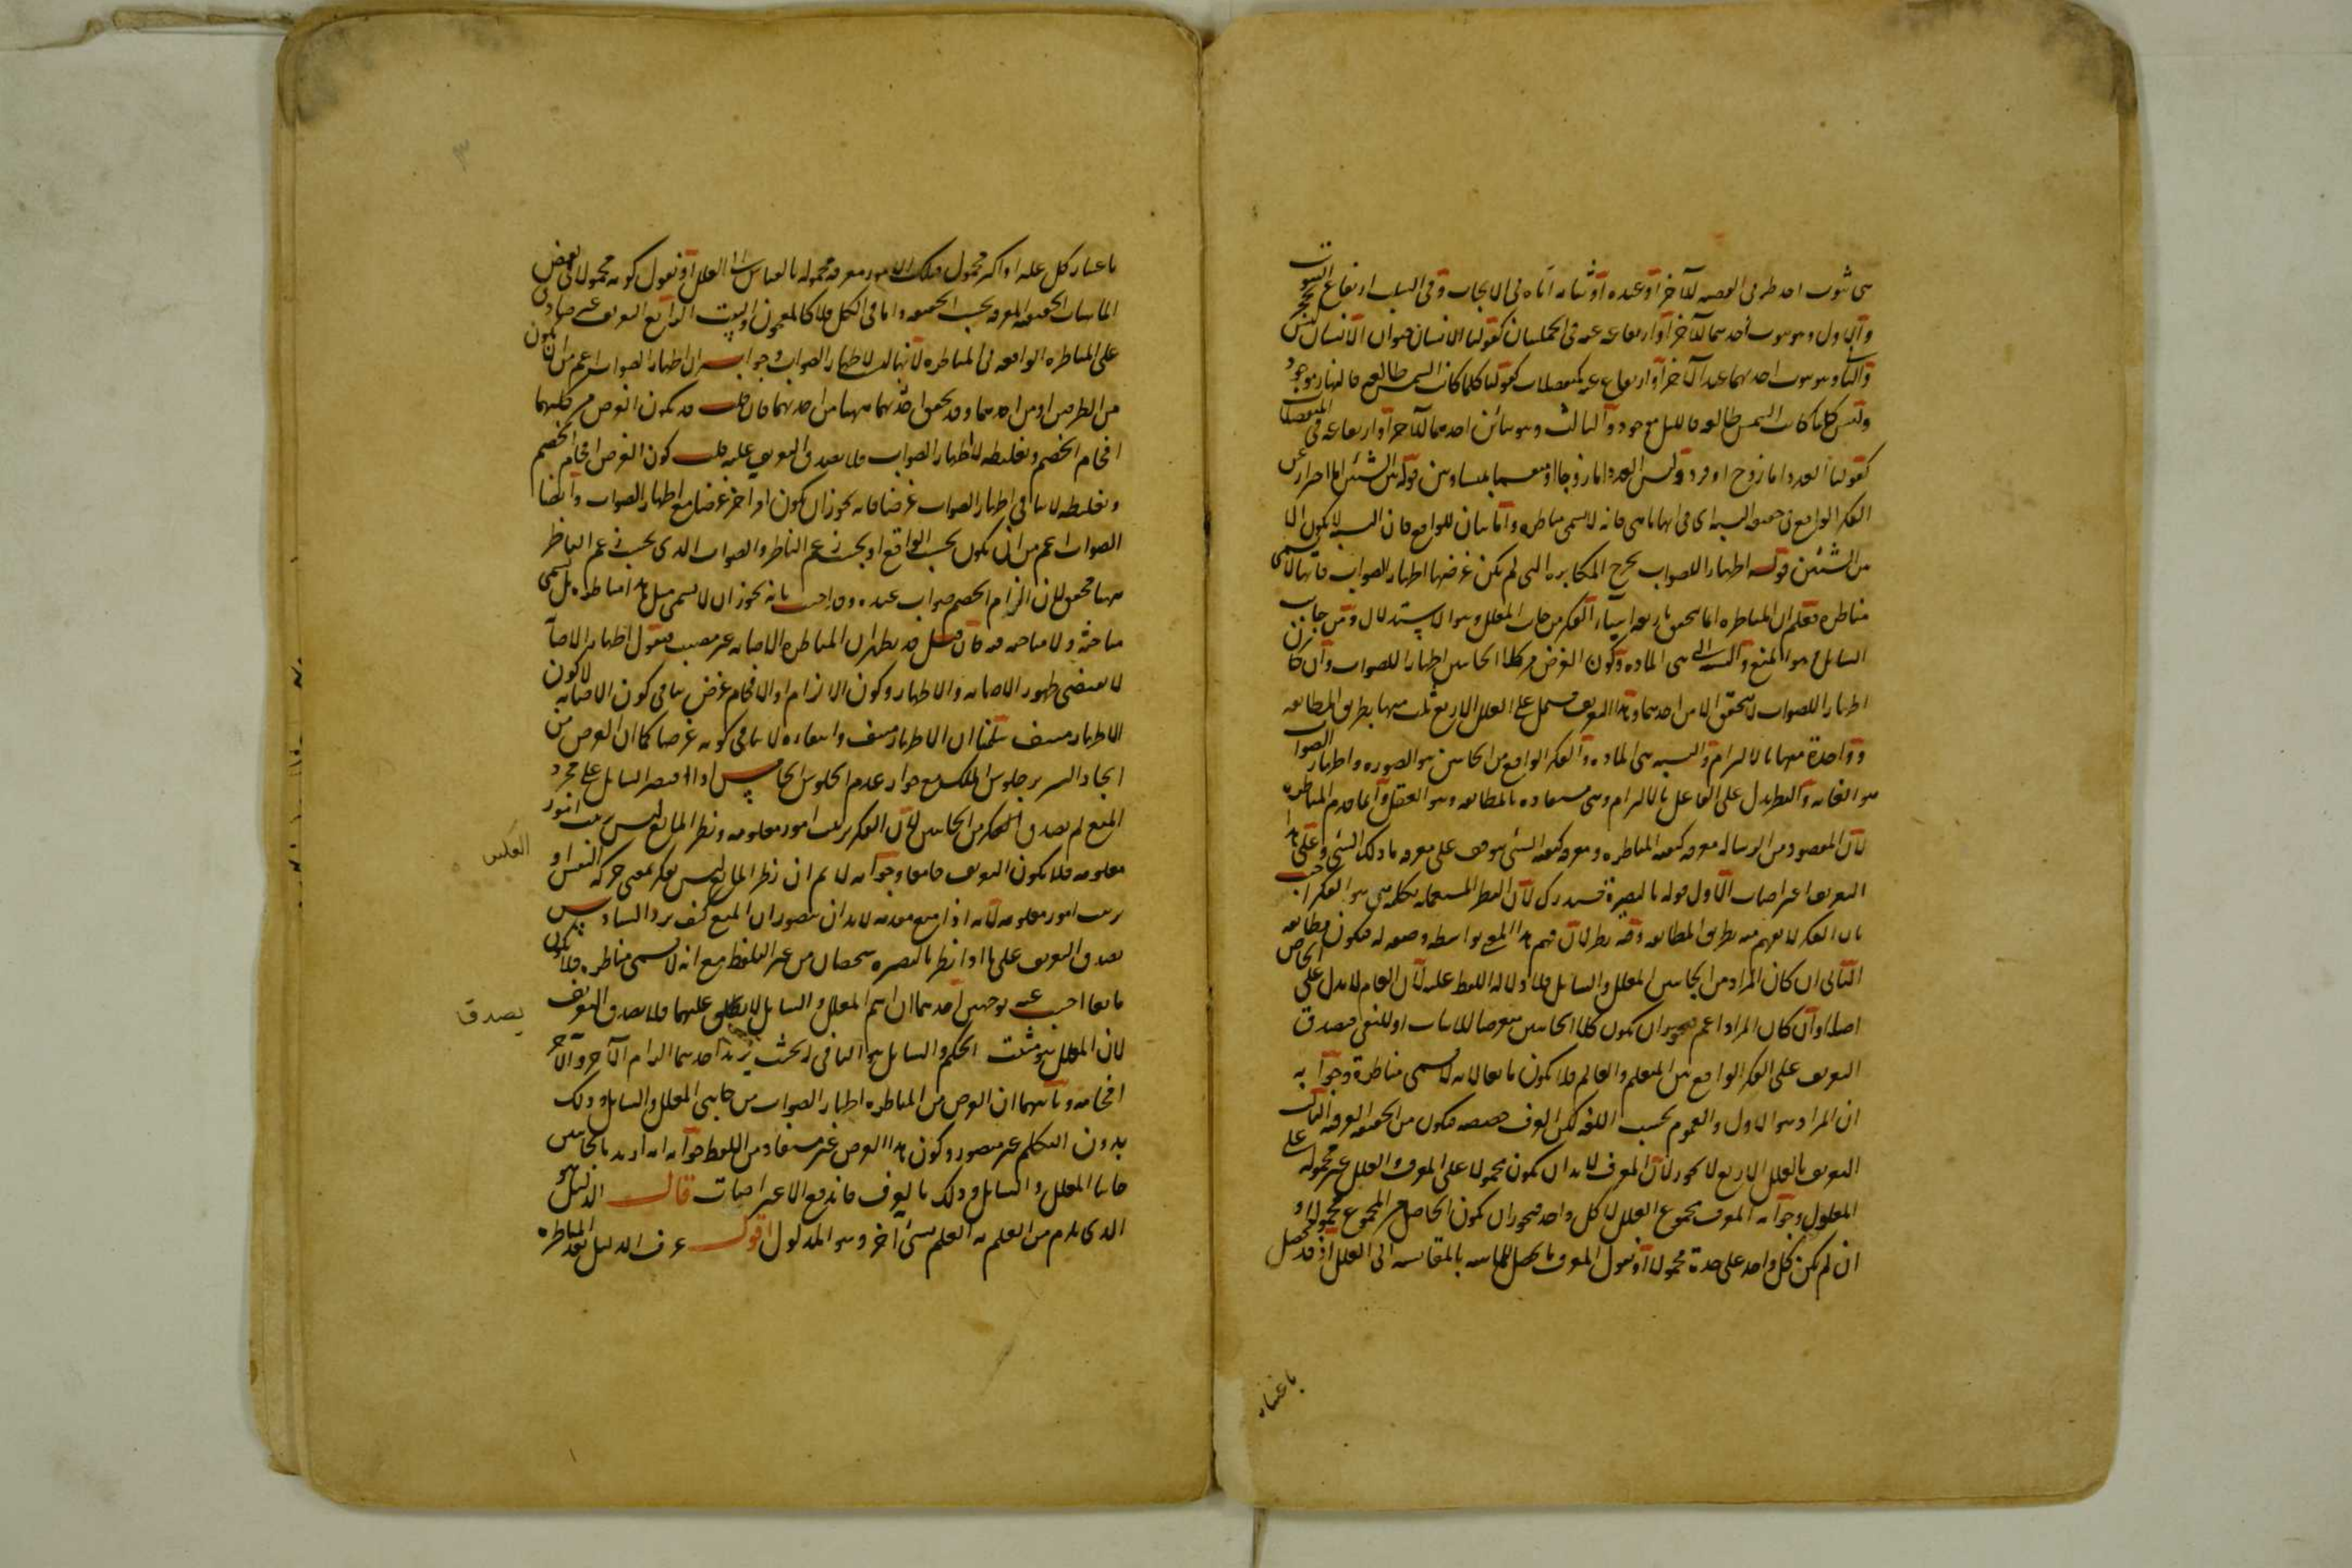 هي ثبوت احد طرفى القضيه للآخر او عنده او منافاته اياه فى الايجاب وفى السلب ارتفاع الثبوت
والاول وهو ثبوت احدهما للآخر او ارتفاعه عنه فى الحمليات كقولنا الانسان حيوان الانسان ليس بحجر
والثانى وهو ثبوت احدهما عند الآخر او ارتفاع عنده كمتصلات كقولنا كلما كانت الشمس طالعه فالنهار موجود
وليس كلما كانت الشمس طالعه فالليل موجود والثالث وهو تباين احدهما للآخر او ارتفاعه فى المنفصلات
كقولنا العدد اما زوج او فرد وليس العدد اما زوجا او منقسما بمتساويين قوله بين الشيئين احترار عن
الفكر الواقع فى النسبه اى فى انها ما هى فانه لا يسمى مناظره فان النسبه لا يكون الا
بين الشيئين قوله اظهارا للصواب يخرج المكابره التى لم يكن غرضها اظهار الصواب فانها لا تسمى
مناظره فعلم ان المناظره انما يتحقق باربعه اشياء الفكر من جانب المعلل وهو الاستدلال ومن جانب
السايل وهو المنع والنسبه التى هى الماده وكون الغرض من كلا الجانبين اظهارا للصواب وان كان
اظهارا للصواب لا يتحقق الا من احدهما وهذا التعريف مشتمل على العلل الاربع ثلث منها بطريق المطابقه
وواحدة منها بالالتزام والنسبه هى الماده والفكر الواقع من الجانبين هو الصوره واظهار الصواب
هو الغايه والنظر يدل على الفاعل بالالتزام وهى مستفاده بالمطابقه وهو العقل وانما قدم المناظره
لان المقصود من الرساله معرفه كيفيه المناظره ومعرفه كيفيه الشئ موقوف على معرفه ذلك الشئ وعلى هذا
التعريف اعتراضات الاول قوله بالبصيرة مستدرك لان النظر المستعمل بكلمه فى هو الفكر اجيب
بان الفكر لا يفهم منه بطريق المطابقه وفيه نظر لان فهم هذا المعنى بواسطه وضعه له فيكون مطابقه
الثانى ان كان المراد من الجانبين المعلل والسائل فلا دلاله اللفظ عليه لان العام لا يدل على الخاص
اصلا وان كان المراد اعم فيجوز ان يكون كلا الجانبين متعرضا للاثبات او للنفى فيصدق
التعريف على الفكر الواقع بين المتعلم والعالم فلا يكون مانعا لانه لا يسمى مناظرة وجوابه
ان المراد هو الاول والعموم بحسب اللغه لكن العرف خصصه فيكون من الحقيقه العرفيه الثالث
التعريف بالعلل الاربع لا يجوز لان المعرف لابد ان يكون محمولا على المعرف والعلل غير محموله على
المعلول وجوابه المعرف مجموع العلل لا كل واحد فيجوز ان يكون الحاصل من المجموع محمولا و
ان لم يكن كل واحد على حدة محمولا او نقول المعرف ما يحصل بالمقايسه الى العلل اذ قد يحصل
باعتبار
باعتبار كل عله او اكثر محمول فتلك الامور معرفه محموله بالقياس الى العلل او نقول كونه محمولا فى بعض
الماهيات الحقيقيه المعرفه بحسب الحقيقه واما فى الكل فلا كالمعجون والبيت الرابع التعريف غير صادق
على المناظره الواقعه فى المناظره لانها ليست لاظهار الصواب وجوابه ان اظهار الصواب اعم من ان يكون
من الطرفين او من احدهما وقد يحقق احدهما ههنا من احدهما فان قلت قد يكون الغرض من كليهما
افحام الخصم وتغليطه لا اظهار الصواب فلا يصدق التعريف عليه قلت كون الغرض افحام الخصم
وتغليطه لا ينافى اظهار الصواب غرضا فانه يجوز ان يكون امر آخر غرضا مع اظهار الصواب وايضا
الصواب اعم من ان يكون بحسب الواقع او بحسب زعم الناظر والصواب الذى بحسب زعم الناظر
ههنا محقق لان الزام الخصم صواب عنده وقد اجيب بانه يجوز ان لا يسمى مثل هذا مناظره بل يسمى
مباحثه ولا مناحه فيه فان قيل قد يظهر ان المناظره الاصابه غير مصيب فنقول اظهار الاصابه
لا يقتضى ظهور الاصابه والاظهار وكون الالزام او الافحام غرض ينافى كون الاصابه لا كون
الاظهار منتف سلمنا ان الاظهار منتف وانتفاءه لا ينافى كونه غرضا كما ان الغرض من
ايجاد السرير جلوس الملك مع جواز عدم الجلوس الخامس اذا اقتصر السايل على مجرد
المنع لم يصدق الفكر من الجانبين لان الفكر ترتيب امور معلومه ونظر المانع ليس ترتيب امور
معلومه فلا يكون التعريف جامعا وجوابه لا نم ان نظر المانع ليس بفكر بمعنى حركه النفس او
ترتيب امور معلومه لانه اذا منع مقدمه لابد ان يتصور ان المنع كيف يرد السادس
يصدق التعريف على ما اذا نظر بالبصيره شخصان من غير التلفظ مع انه لا يسمى مناظره فلا يكون
مانعا اجيب عنه بوجهين احدهما ان اسم المعلل والسايل لا يطلق عليهما فلا يصدق التعريف
لان المعلل هو مثبت الحكم والسايل هو النافى بحيث يريد احدهما الزام الآخر والآخر
افحامه وثانيهما ان الغرض من المناظره اظهار الصواب من جانبى المعلل والسايل وذلك
بدون التكلم غير متصور وكون هذا الغرض غير مستفاد من اللفظ جوابه انه اريد بالجانبين
جانبا المعلل والسايل وذلك بالعرف فاندفع الاعتراضات قال الدليل هو
الذى يلزم من العلم به العلم بشئ آخر وهو المدلول اقول عرف الدليل بعد المناظره
العكس
يصدق
٣